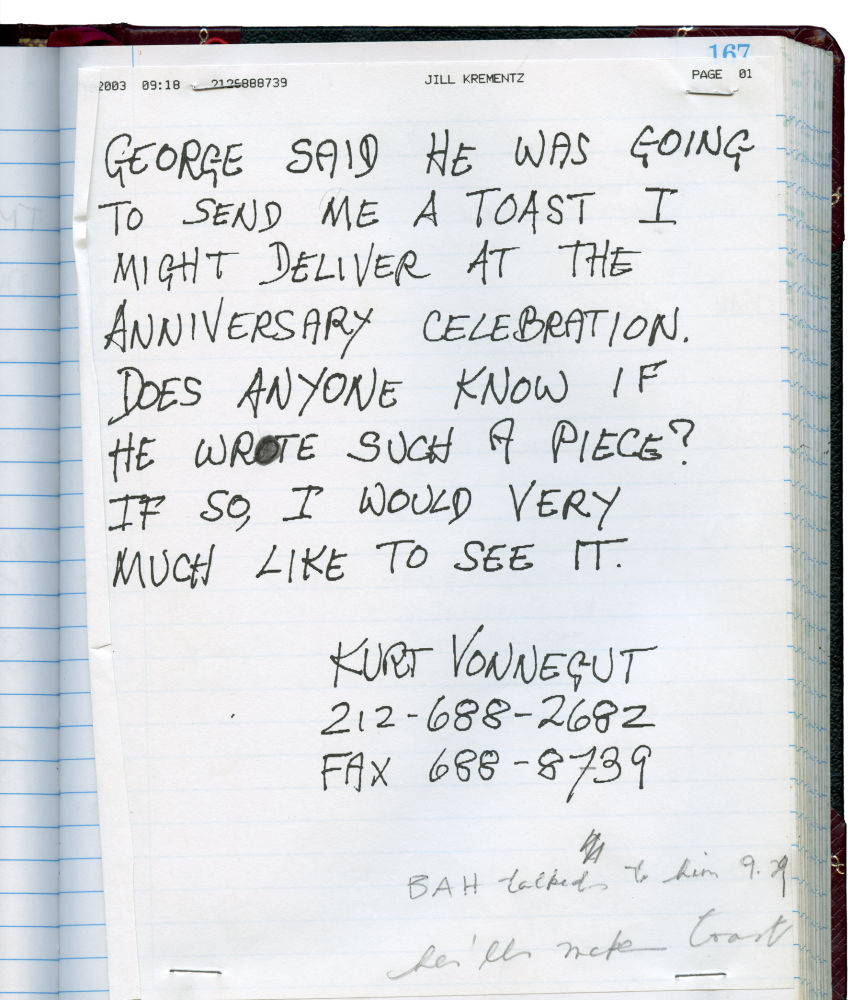 167
2003 09:18 2126888739 JILL KREMENTZ PAGE 01
GEORGE SAID HE WAS GOING
TO SEND ME A TOAST I
MIGHT DELIVER AT THE
ANNIVERSARY CELEBRATION.
DOES ANYONE KNOW IF
HE WROTE SUCH A PIECE?
IF SO, I WOULD VERY
MUCH LIKE TO SEE IT.
KURT VONNEGUT
212-688-2682
FAX 688-8739
BAH talked to him 9.29
he'll make toast